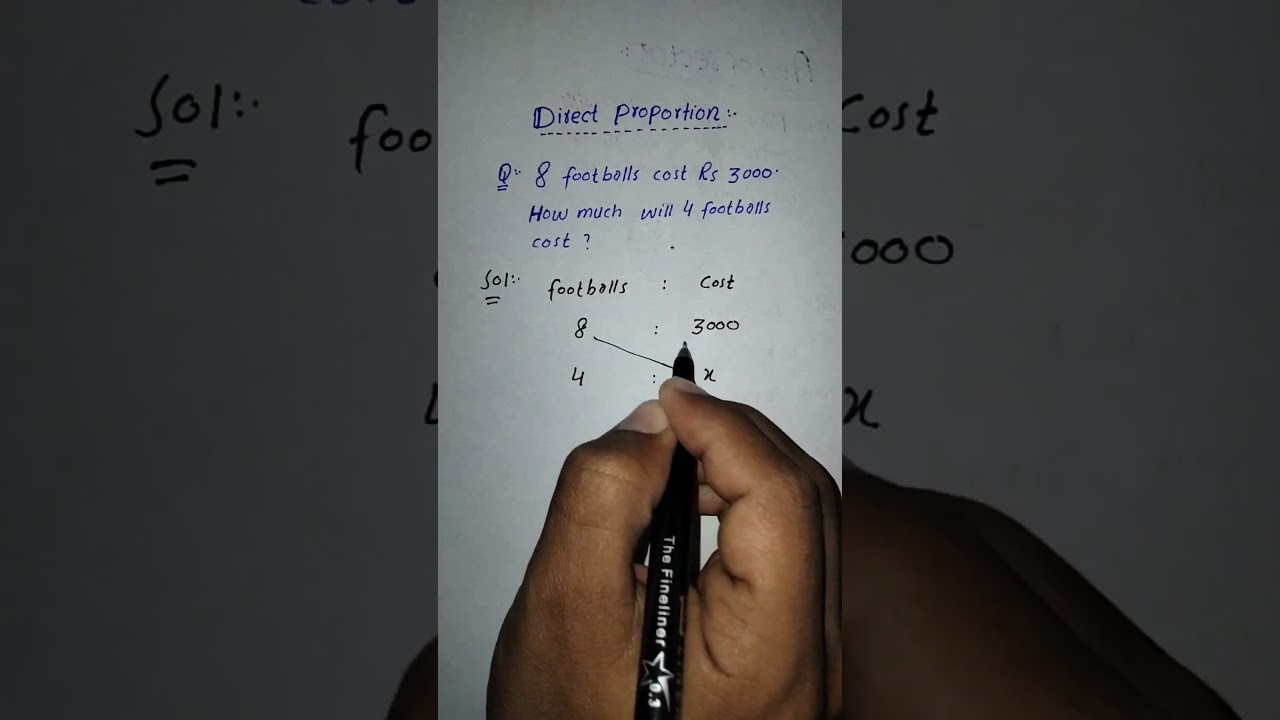 Direct Proportion:-
Q:- 8 footballs cost Rs 3000.
How much will 4 footballs
cost ?
Sol:- footballs : Cost
8 : 3000
4 : x
The Fineliner 0.3